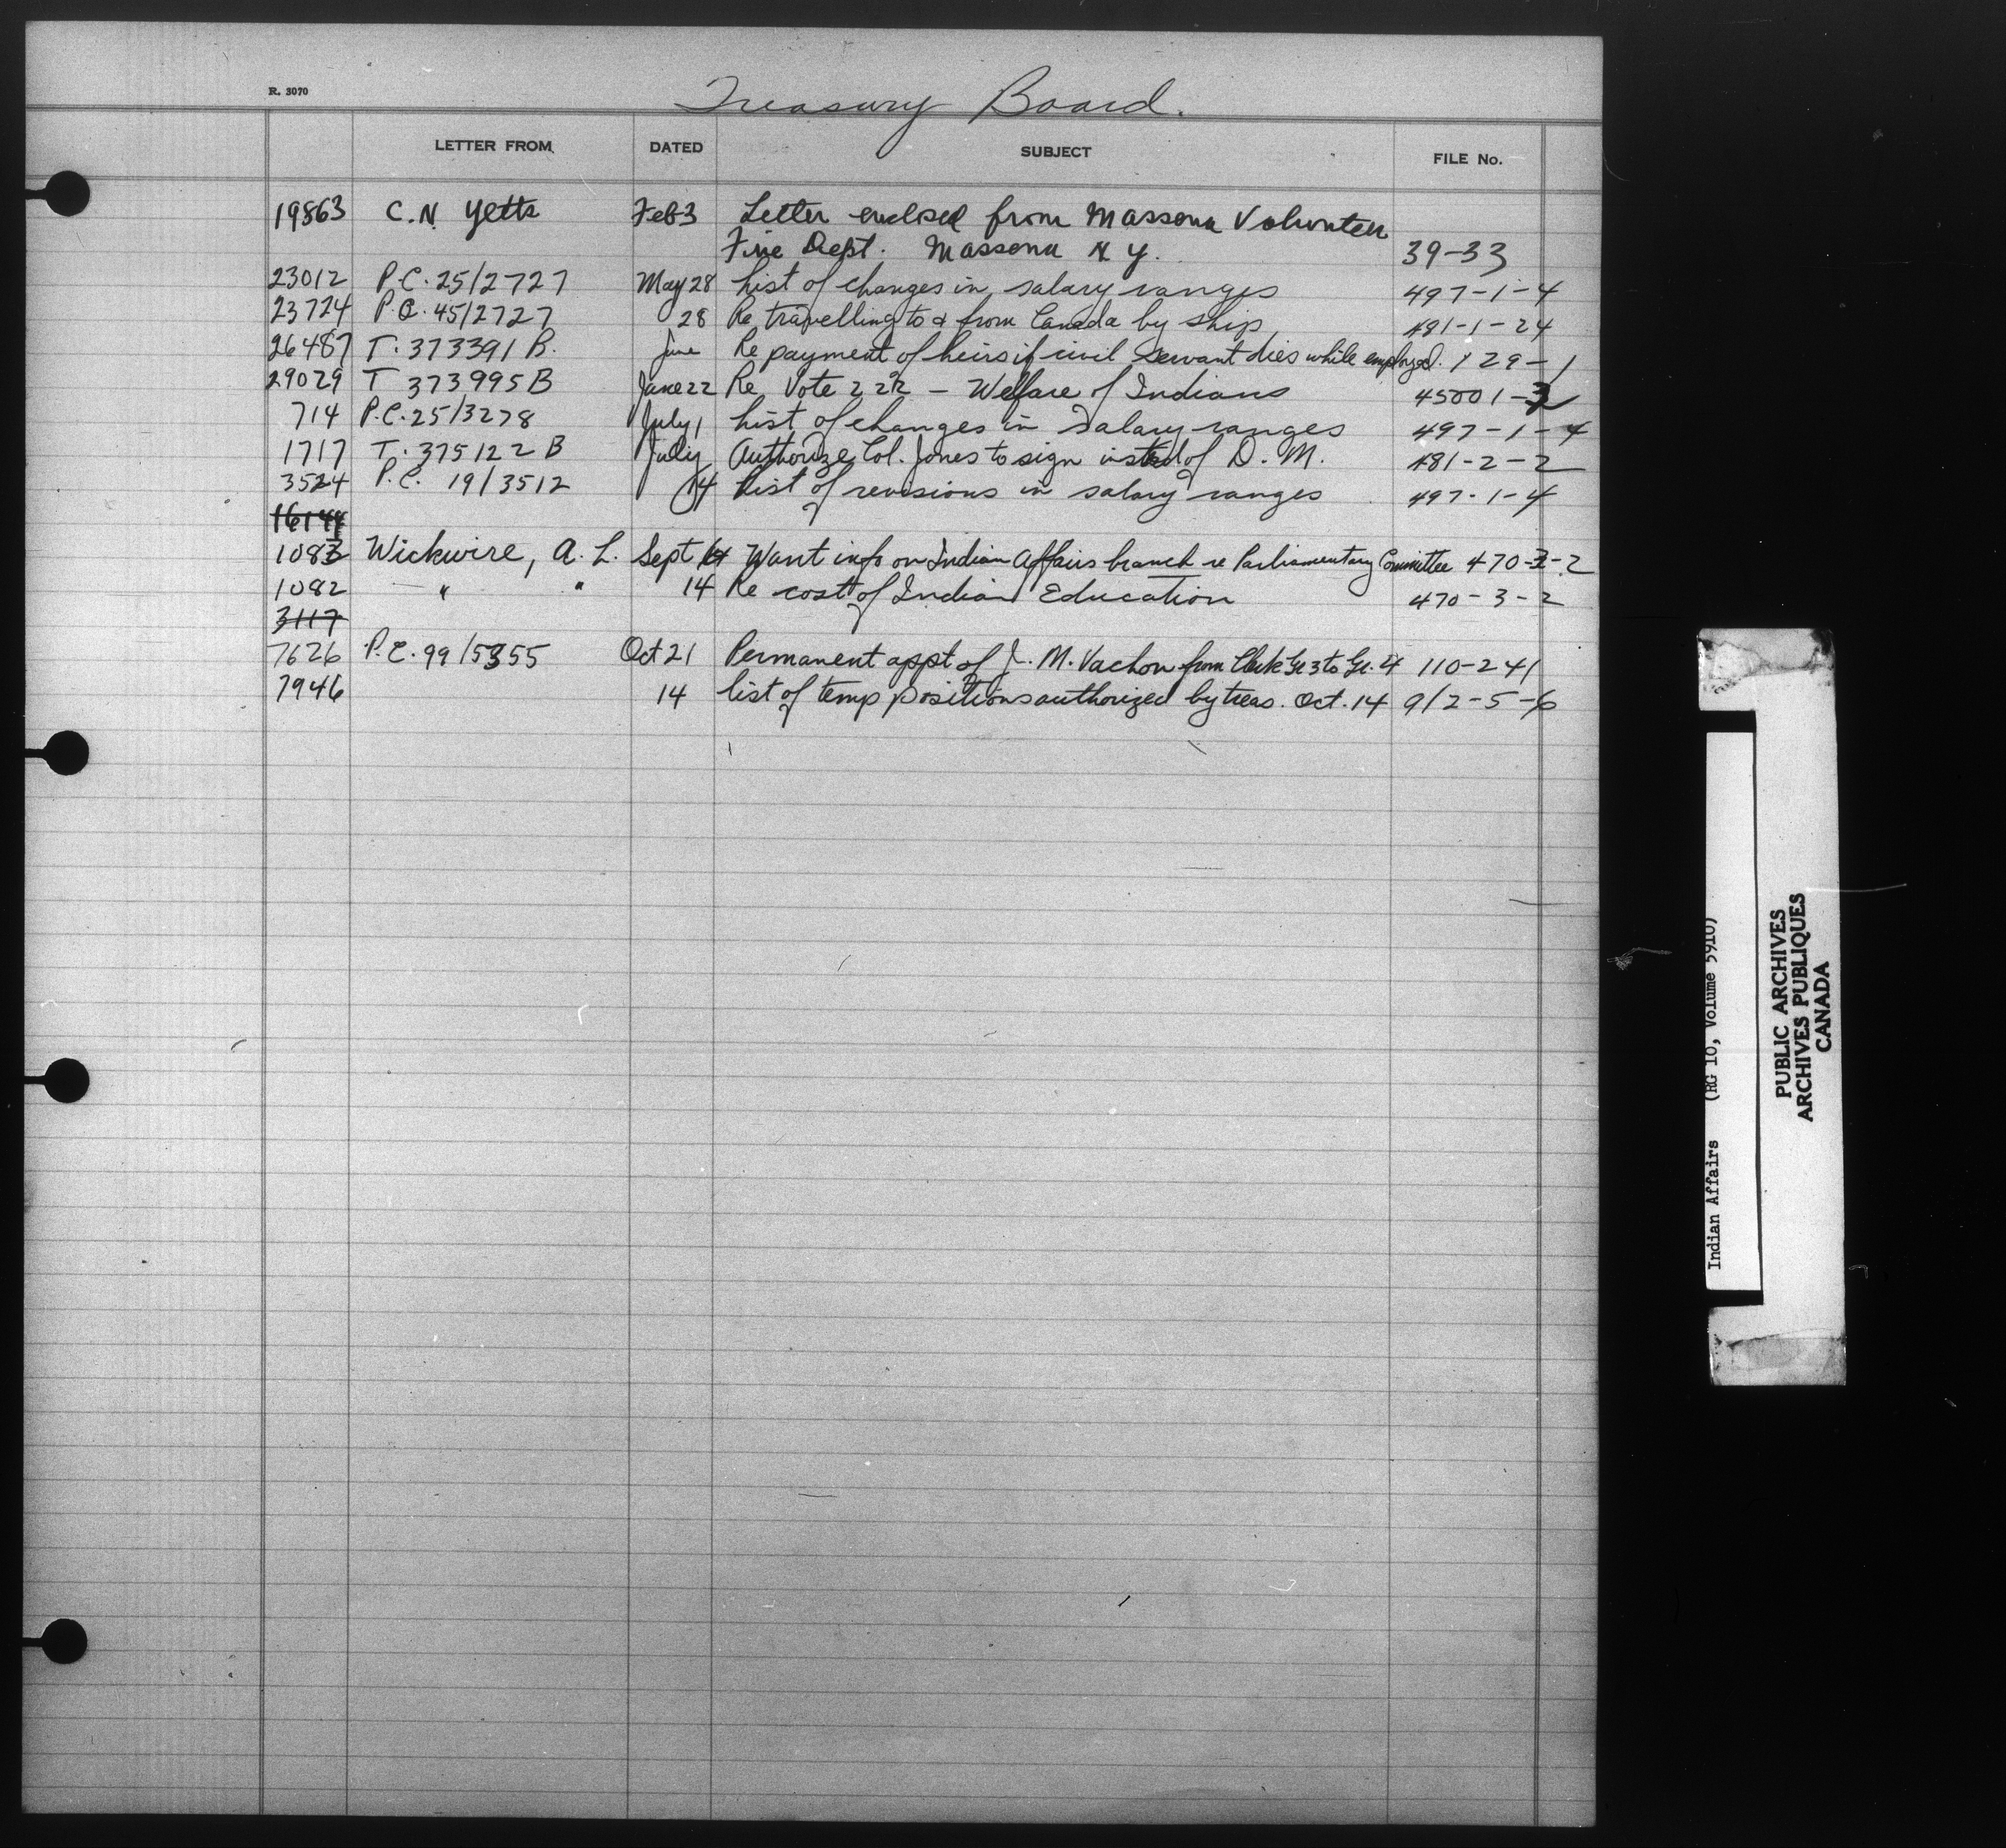 R. 3070
Treasury Board.
LETTER FROM DATED SUBJECT FILE No.
19863 C. N. Yetts Feb 3 Letter enclosed from Massena Volunteer
Fire Dept. Massena N. Y. 39-33
23012 P.C. 25/2727 May 28 List of changes in salary ranges 497-1-4
23724 P.C. 45/2727 28 Re travelling to & from Canada by ship 481-1-24
26487 T. 373391 B. June Re payment of heirs if civil servant dies while employed. 129-1
29029 T 373995 B June 22 Re Vote 222 - Welfare of Indians 45001-
714 P.C. 25/3278 July 1 List of changes in salary ranges 497-1-4
1717 T. 375122 B July Authorize Col. Jones to sign instead of D. M. 481-2-2
3524 P.C. 19/3512 14 List of revisions in salary ranges 497-1-4
16144
1083 Wickwire, A. L. Sept 14 Want info on Indian Affairs branch re Parliamentary Committee 470-3-2
1082 " " 14 Re cost of Indian Education 470-3-2
3117
7626 P.C. 99/5355 Oct 21 Permanent appt of J. M. Vachon from Clerk Gr 3 to Gr. 4 110-241
7946 14 list of temp positions authorized by treas. Oct. 14 912-5-6
Indian Affairs (RG 10, Volume 5910)
PUBLIC ARCHIVES
ARCHIVES PUBLIQUES
CANADA